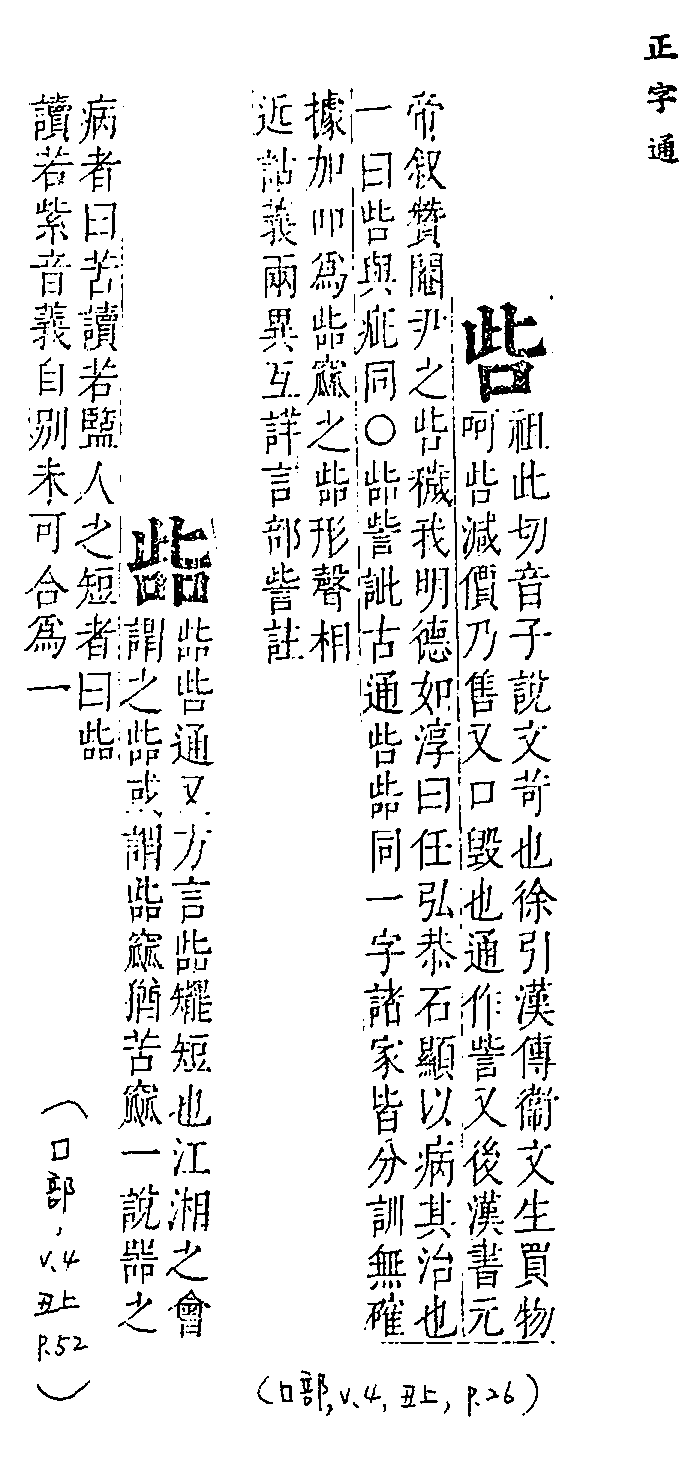 正字通
呰
祖此切音子說文苛也徐引漢傳衞文生買物
呵呰減價乃售又口毀也通作訾又後漢書元
帝叙贊閹尹之呰穢我明德如淳曰任弘恭石顯以病其治也
一曰呰與疵同○啙訾訿古通呰啙同一字諸家皆分訓無確
據加吅爲啙窳之啙形聲相
近詁義兩異互詳言部訾註
(口部,v.4,丑上,p.26)
啙
啙呰通又方言啙矲短也江湘之會
謂之啙或謂啙窳猶苦窳一說器之
病者曰苦讀若盬人之短者曰啙
讀若紫音義自別未可合爲一
(口部,v.4丑上p.52)